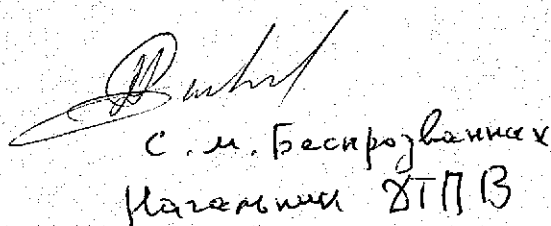 С. М. Беспрозванных
Начальник ДТПВ